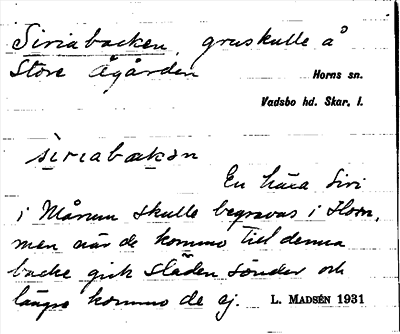 Siriabacken, gruskulle å
Store Ågården
Horns sn.
Vadsbo hd. Skar. l.
siriabakən
En häxa Siri
i Mårum skulle begravas i Horn,
men när de kommo till denna
backe gick släden sönder och
längre kommo de ej. L. MADSÉN 1931